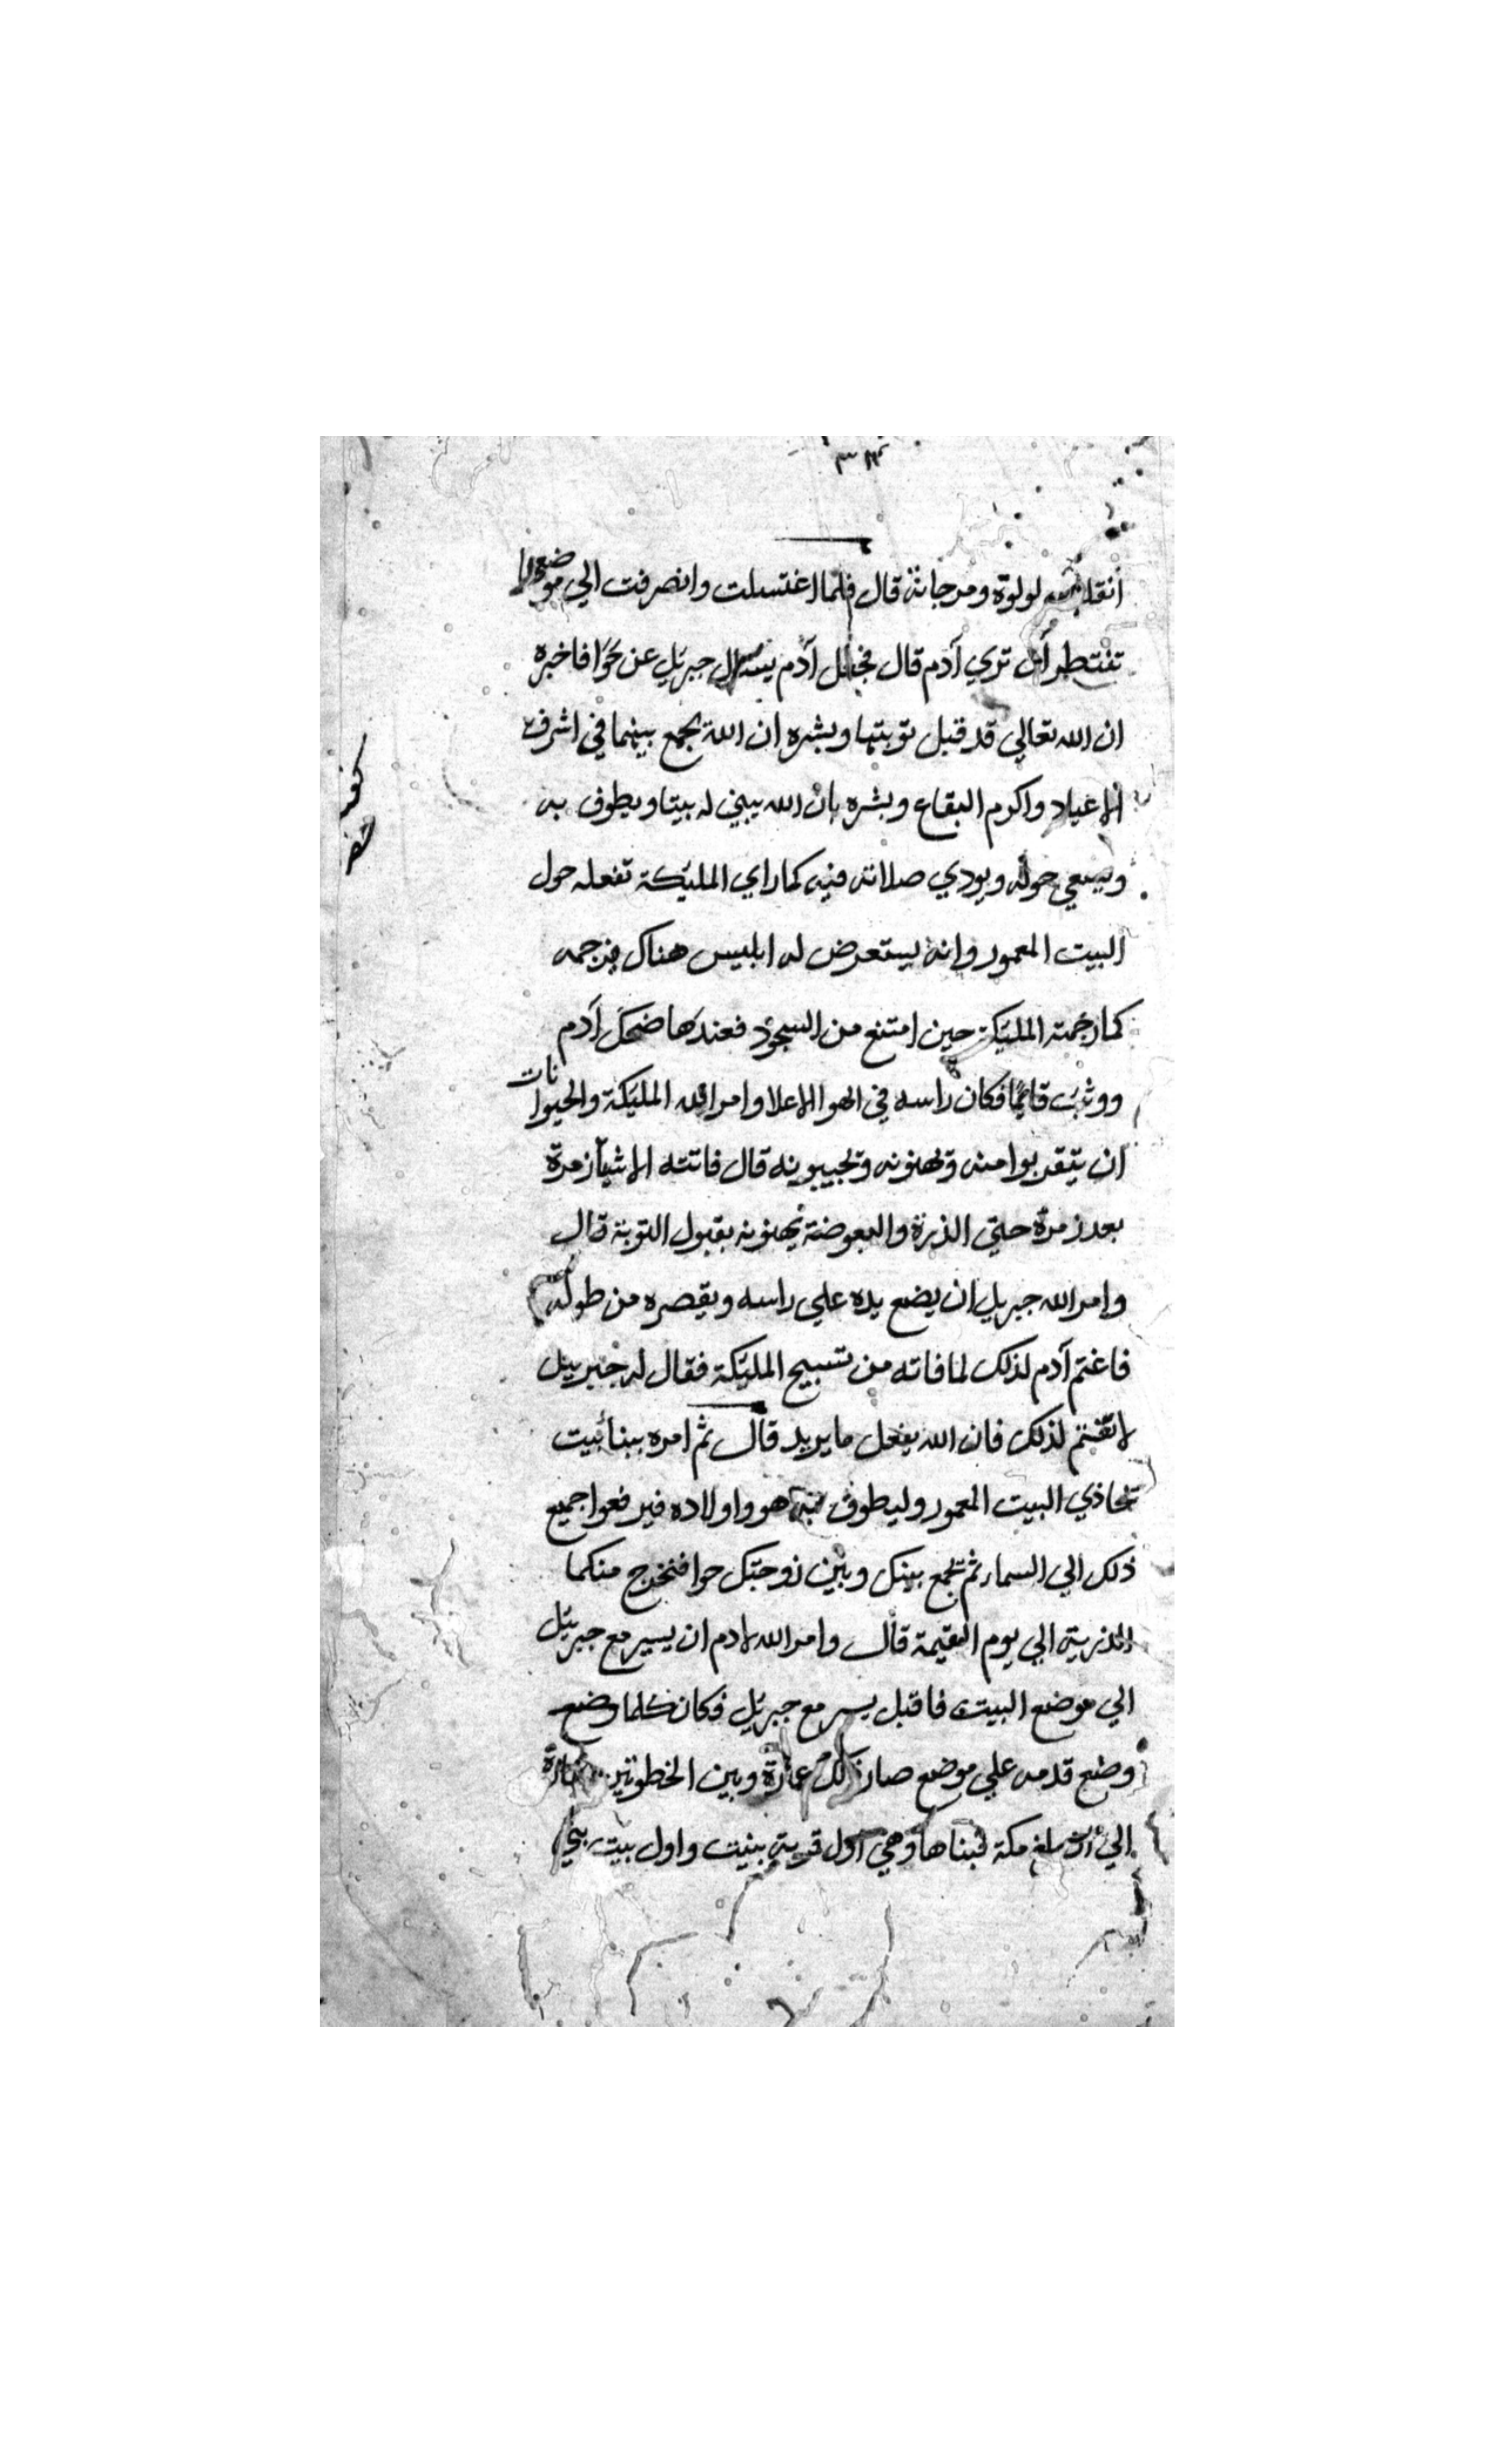 انقلبت لولوة ومرجانة قال فلما اغتسلت وانصرفت الي موضعها
تنتظر أن تري آدم قال فجعل آدم يسال جبريل عن حوا فاخبره
ان الله تعالي قد قبل توبتها وبشره ان الله يجمع بينهما في اشرف
الاعياد واكرم البقاع وبشره بان الله يبني له بيتا ويطوف به
ويسعي حوله ويودي صلاته فيه كما راي المليكة تفعله حول
البيت المعمور وانه يستعرض له ابليس هناك فيرجمه
كما رجمته المليكة حين امتنع من السجود فعندها ضحك آدم
ووثب قايما فكان راسه في الهوا الاعلا وامر الله المليكة والحيوانات
ان يتقربوا منه ويهنونه ويجيبونه قال فاتته الاشيا زمرة
بعد زمرة حتي الذرة والبعوضة يهنونه بقبول التوبة قال
وامر الله جبريل ان يضع يده علي راسه ويقصره من طوله
فاغتم آدم لذلك لما فاته من تسبيح المليكة فقال له جبرييل
لا تغتم لذلك فان الله يفعل ما يريد قال ثم امره ببنا بيت
تحاذي البيت المعمور وليطوف به هو واولاده فيرفعوا جميع
ذلك الي السماء ثم تجمع بينك وبين زوجتك حوا فتخرج منكما
الذرية الي يوم القيمة قال وامر الله لادم ان يسير مع جبريل
الي موضع البيت فاقبل يسير مع جبريل فكان كلما وضع
وضع قدمه علي موضع صار ذلك عمارة وبين الخطوتين
الي ان بلغ مكة فبناها وهي اول قرية بنيت واول بيت بني